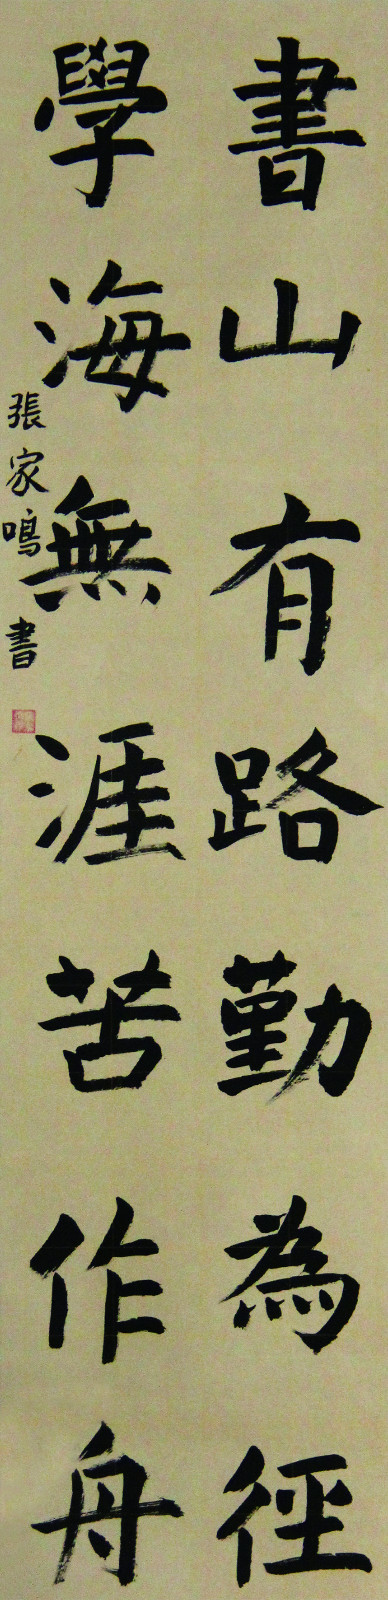 書山有路勤為徑
學海無涯苦作舟
張家鳴書